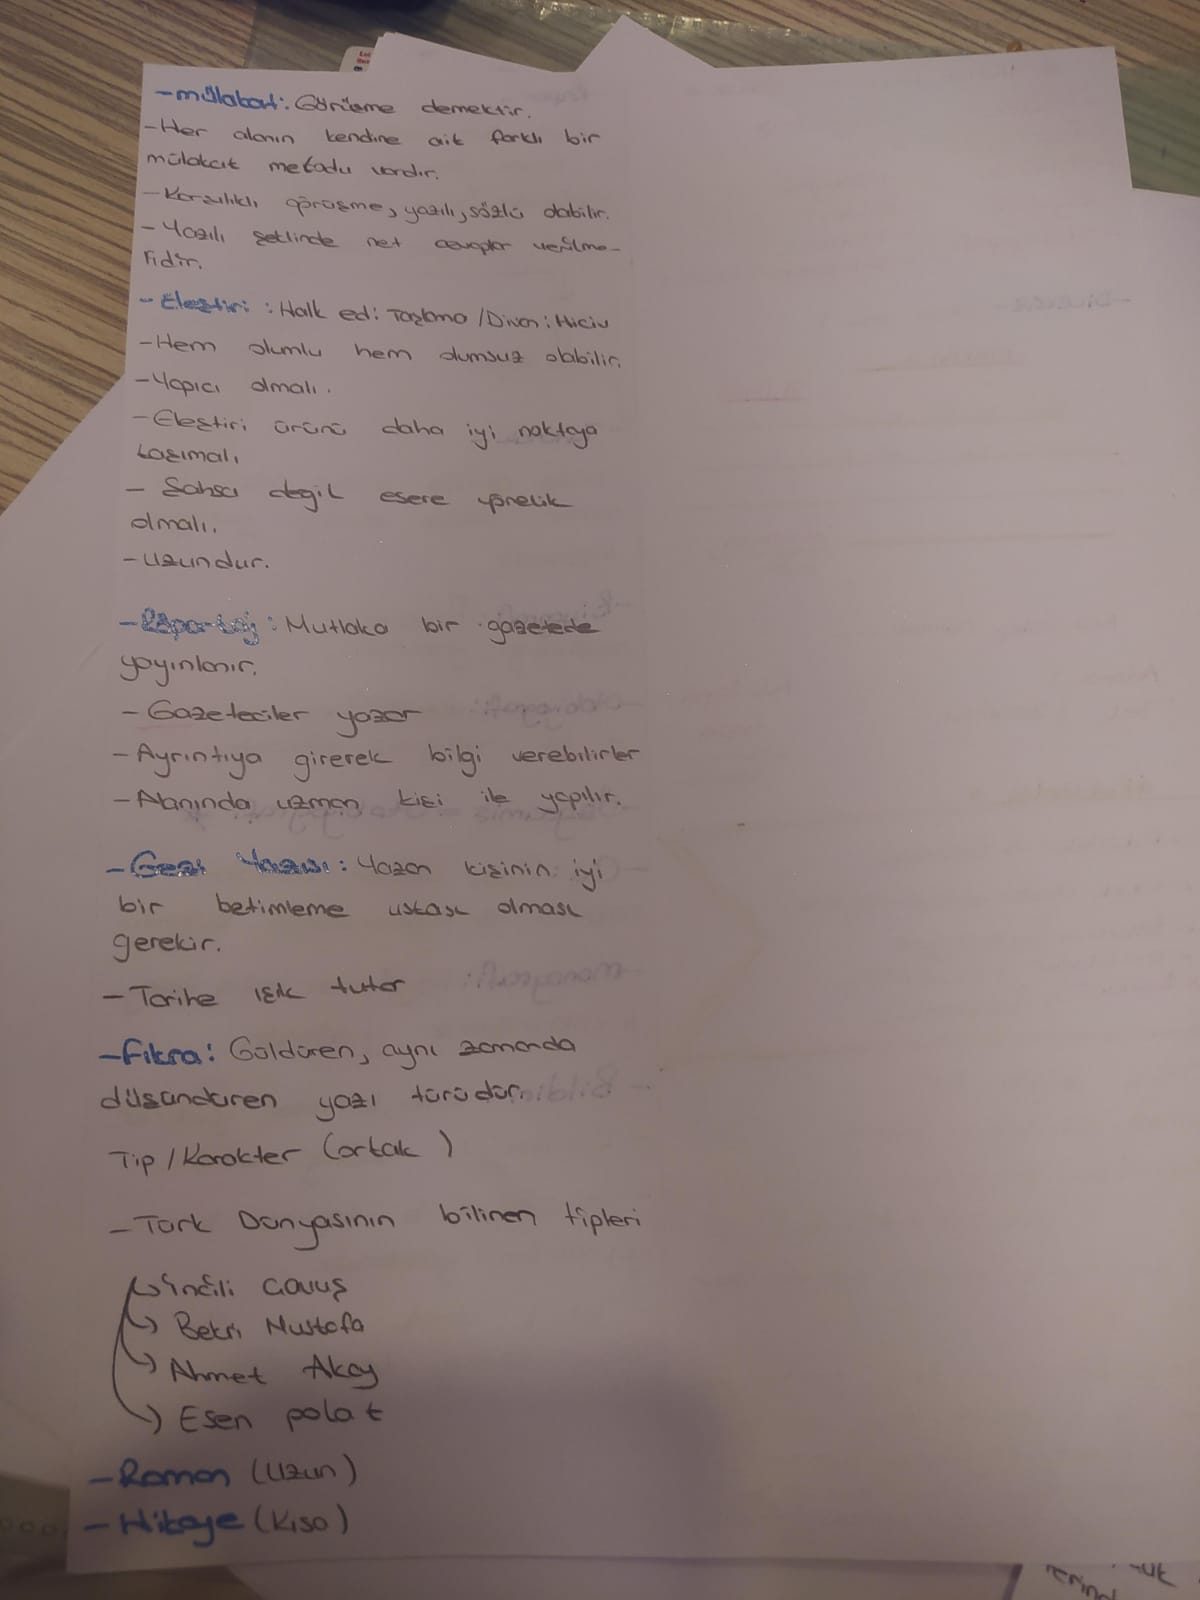 - mülakat: Görüşme demektir.
- Her alanın kendine ait farklı bir
mülakat metodu vardır.
- Karşılıklı görüşme, yazılı, sözlü olabilir.
- Yazılı şeklinde net cevaplar verilme-
lidir.
- Eleştiri : Halk ed: Taşlama / Divan: Hiciv
- Hem olumlu hem olumsuz olabilir.
- Yapıcı olmalı.
- Eleştiri ürünü daha iyi noktaya
taşımalı
- Şahsa değil esere yönelik
olmalı.
- Uzundur.
- Röportaj: Mutlaka bir gazetede
yayınlanır.
- Gazeteciler yazar
- Ayrıntıya girerek bilgi verebilirler
- Alanında uzman kişi ile yapılır.
- Gezi Yazısı: Yazan kişinin iyi
bir betimleme ustası olması
gerekir.
- Tarihe ışık tutar
- Fıkra: Güldüren, aynı zamanda
düşündüren yazı türüdür.
Tip / Karakter (ortak )
- Türk Dünyasının bilinen tipleri
İncili Çavuş
Bekri Mustafa
Ahmet Akay
Esen polat
- Roman (Uzun)
- Hikaye (Kısa)